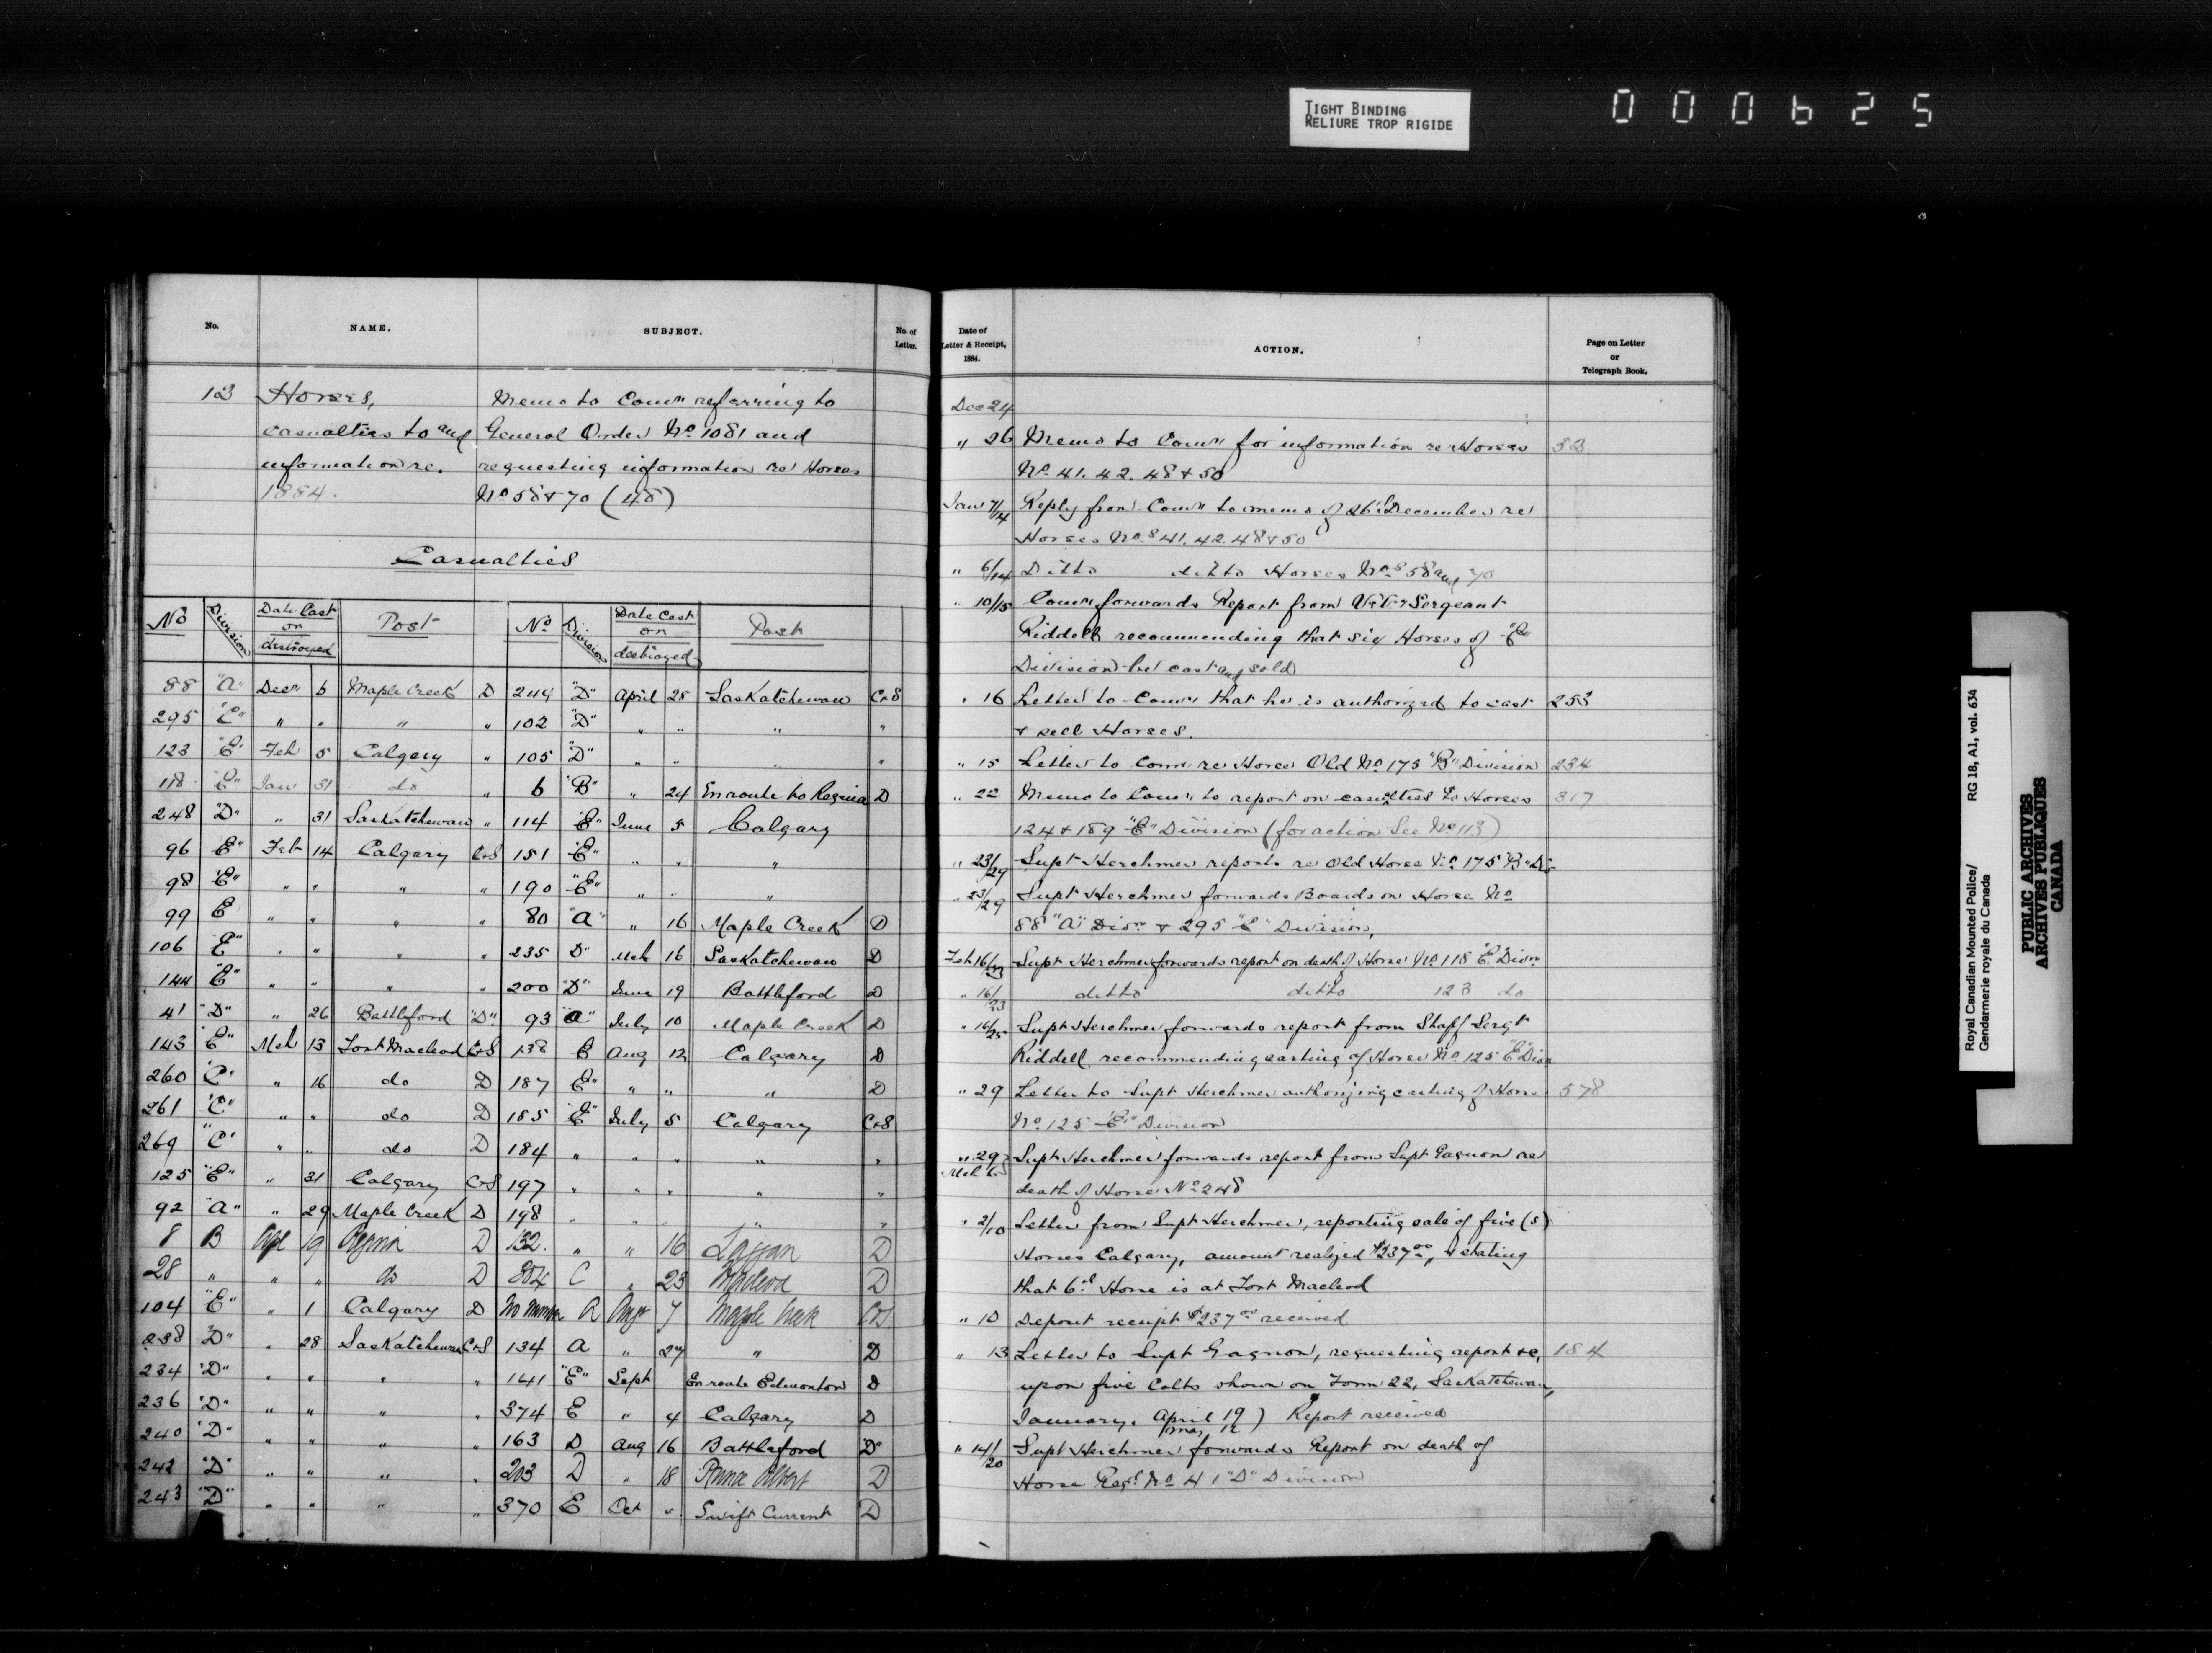 TIGHT BINDING
RELIURE TROP RIGIDE
000625
No. NAME. SUBJECT. No. of Letter.
13 Horses, Memo to Comr referring to
casualties to and General Order No 1081 and
information re. requesting information re Horses
1884. No 58 & 70 (48)
Casualties
No Division Date Cast or destroyed Post No Division Date Cast or destroyed Post
88 "A" Decr 6 Maple Creek D 244 "D" April 28 Saskatchewan C&S
295 "E" " " " " 102 "D" " " " "
123 "E" Feb 5 Calgary " 105 "D" " " " "
118 "E" Jan 31 do " 6 "B" " 24 Enroute to Regina D
248 "D" " 31 Saskatchewan " 114 "E" June 5 Calgary
96 E" Feb 14 Calgary C&S 151 "E" " " "
98 "E" " " " " 190 "E" " " "
99 E " " " " 80 "A" " 16 Maple Creek D
106 E" " " " " 235 D" Mch 16 Saskatchewan D
144 "E" " " " " 200 "D" June 19 Battleford D
41 "D" " 26 Battleford "D" 93 "A" July 10 Maple Creek D
143 "E" Mch 13 Fort Macleod C&S 138 E Aug 12 Calgary D
260 "C" " 16 do D 187 E" " " " D
261 "C" " " do D 185 "E" July 5 Calgary C&S
269 "C" " " do D 184 " " " " "
125 "E" " 31 Calgary C&S 197 " " " " "
92 "A" " 29 Maple Creek D 198 " " " " "
8 B Apl 19 Regina D 132 " " 16 Laggan D
28 " " " do D 304 C " 23 Macleod D
104 "E" " 1 Calgary D No number A Augt 7 Maple Creek C&S
238 "D" " 28 Saskatchewan C&S 134 A " 27 " D
234 "D" " " " " 141 "E" Sept Enroute Edmonton D
236 "D" " " " " 374 E " 4 Calgary D
240 "D" " " " " 163 D Aug 16 Battleford "D"
242 "D" " " " " 203 D " 18 Prince Albert D
243 "D" " " " " 370 E Oct " Swift Current D
Date of Letter & Receipt, 1884. ACTION. Page on Letter or Telegraph Book.
Dec 24
" 26 Memo to Comr for information re Horses 32
No 41. 42. 48 & 50
Jan 7/14 Reply from Comr to memo of 26th December re
Horses Nos 41. 42. 48 & 50
" 6/14 Ditto ditto Horses Nos 58 and 70
" 10/15 Comr forwards Report from Sergeant
Riddell recommending that six Horses of "E"
Division be cast and sold
" 16 Letter to Comr that he is authorized to cast 253
& sell Horses.
" 15 Letter to Comr re Horse Old No 175 "B" Division 234
" 22 Memo to Comr to report on casualties to Horses 317
124 & 189 "E" Division (for action See No 113)
" 23/29 Supt Herchmer reports re Old Horse No 175 "B" Div
" 23/29 Supt Herchmer forwards Boards on Horse No
88 "A" Divn & 295 "E" Division,
Feb 16/23 Supt Herchmer forwards report on death of Horse No 118 "E" Divn
" 16/23 ditto ditto 123 do
" 16/25 Supt Herchmer forwards report from Staff Sergt
Riddell recommending casting of Horse No 125 "E" Divn
" 29 Letter to Supt Herchmer authorizing casting of Horse 578
No 125 "E" Division
" 29 Mch 6 Supt Herchmer forwards report from Supt Gagnon re
death of Horse No 248
" 2/10 Letter from Supt Herchmer, reporting sale of five (5)
Horses Calgary, amount realized $237.00, & stating
that 6th Horse is at Fort Macleod
" 10 Deposit receipt $237.00 received
" 13 Letter to Supt Gagnon, requesting report &c, 184
upon five Colts shown on Form 22, Saskatchewan,
January, April 19) Report received
May 12
" 14/20 Supt Herchmer forwards Report on death of
Horse Regl No 41 "D" Division
Royal Canadian Mounted Police/
Gendarmerie royale du Canada
RG 18, A1, vol. 634
PUBLIC ARCHIVES
ARCHIVES PUBLIQUES
CANADA